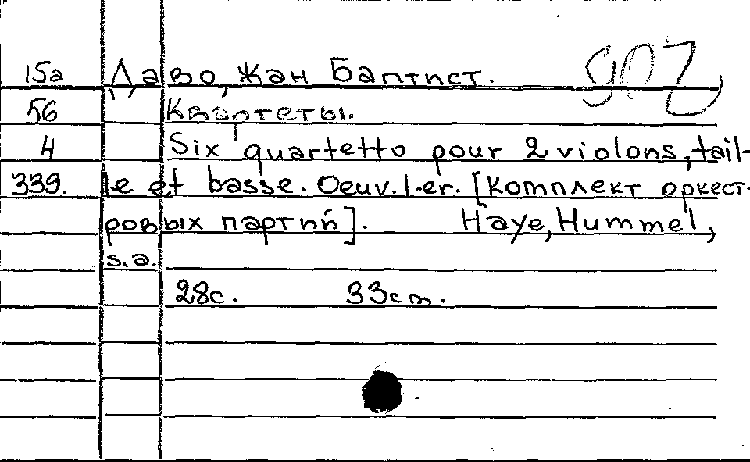 15а Даво, Жан Баптист. 902
5б Квартеты.
4 Six quartetto pour 2 violons, tail-
339. le et basse. Oeuv. 1-er. [Комплект оркест-
ровых партий]. Haye, Hummel,
s.a.
28с. 33см.